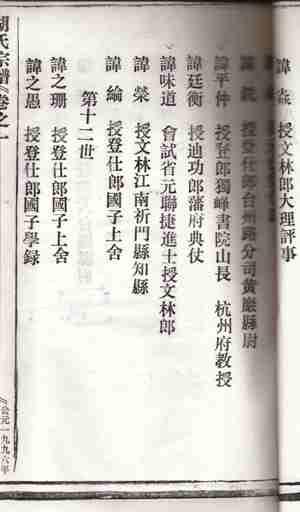 諱焱 授文林郎大理評事
授登仕郎台州路分司黃巖縣尉
諱平仲 授登郎獨峰書院山長 杭州府教授
諱廷衡 授迪功郎藩府典仗
諱味道 會試省元聯捷進士授文林郎
諱榮 授文林江南祈門縣知縣
諱綸 授登仕郎國子上舍
第十二世
諱之珊 授登仕郎國子上舍
諱之愚 授登仕郎國子學録
胡氏宗譜《卷之一
《公元一九九六年